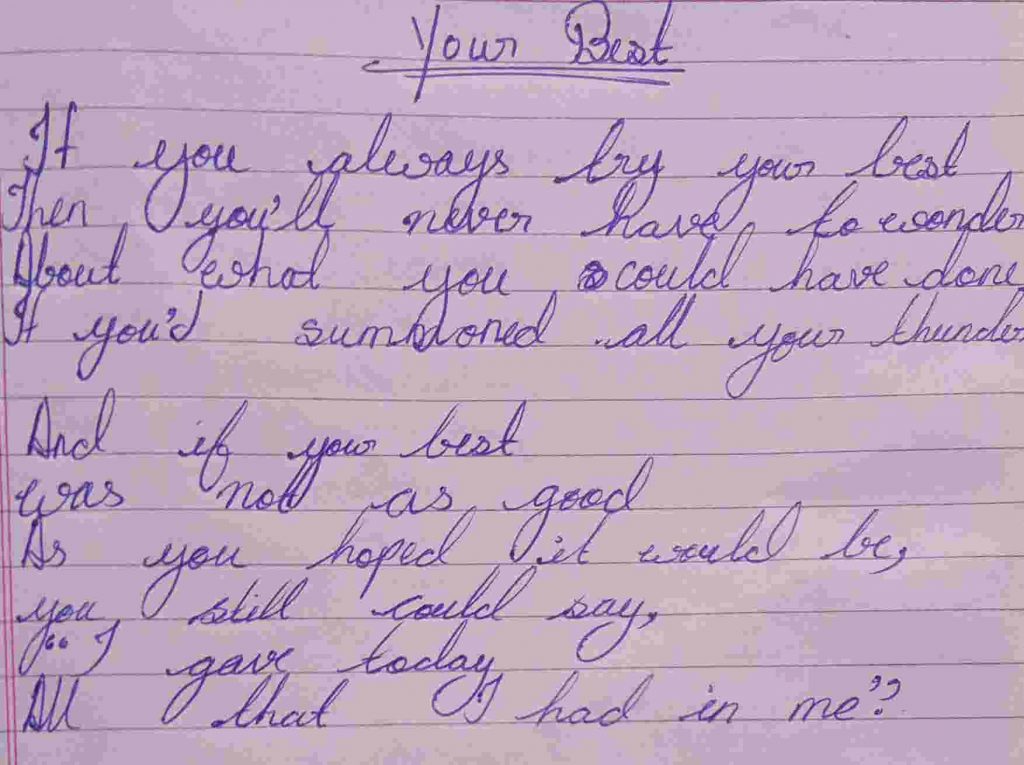 Your Best
If you always try your best
Then you'll never have to wonder
About what you could have done
If you'd summoned all your thunder
And if your best
was not as good
As you hoped it would be,
you still could say,
"I gave today
All that I had in me"?